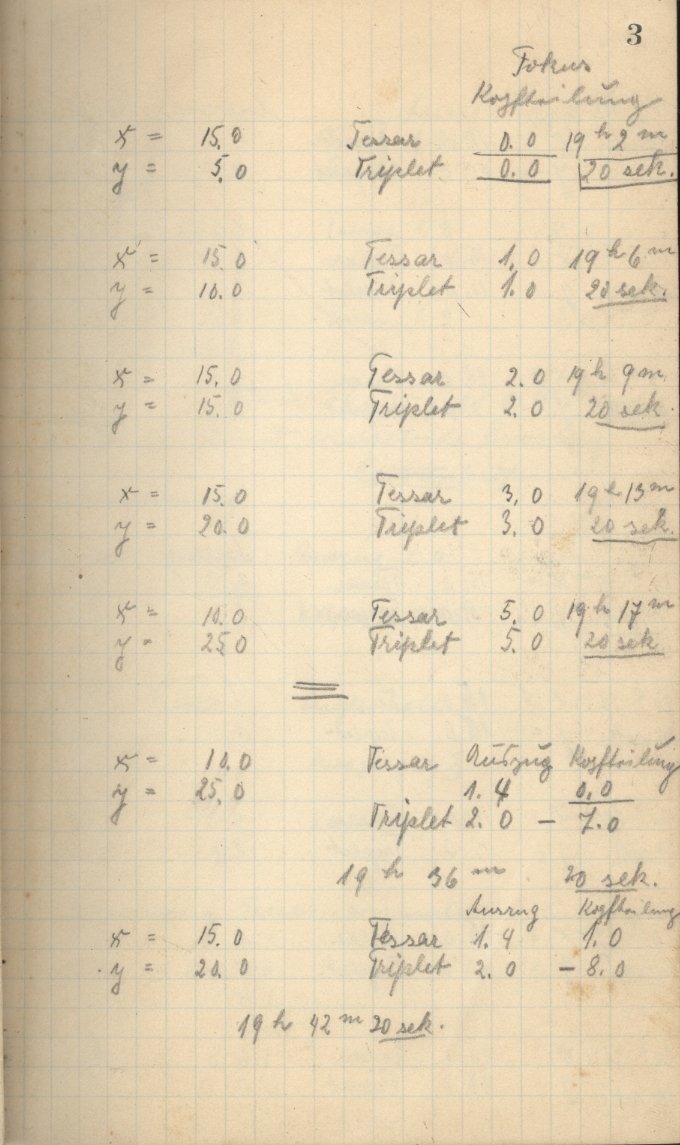 3
Fokus
Kopfteilung
x = 15.0 Tessar 0.0 19 h 2 m
y = 5.0 Triplet 0.0 20 sek.
x = 15.0 Tessar 1.0 19 h 6 m
y = 10.0 Triplet 1.0 20 sek.
x = 15.0 Tessar 2.0 19 h 9 m
y = 15.0 Triplet 2.0 20 sek.
x = 15.0 Tessar 3.0 19 h 13 m
y = 20.0 Triplet 3.0 20 sek.
x = 10.0 Tessar 5.0 19 h 17 m
y = 25.0 Triplet 5.0 20 sek
x = 10.0 Tessar Auszug Kopfteilung
y = 25.0 1.4 0.0
Triplet 2.0 – 7.0
19 h 36 m 20 sek.
Auszug Kopfteilung
x = 15.0 Tessar 1.4 1.0
y = 20.0 Triplet 2.0 – 8.0
19 h 42 m 20 sek.